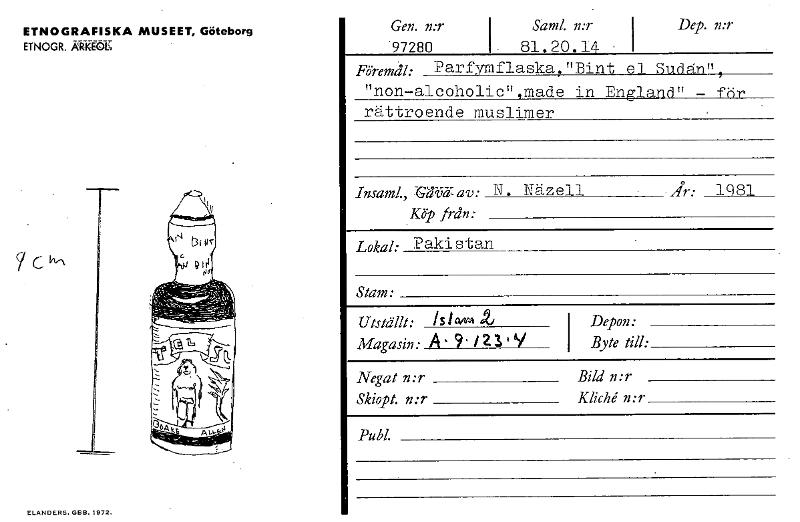 ETNOGRAFISKA MUSEET, Göteborg
ETNOGR. ARKEOL.
Gen. n:r Saml. n:r Dep. n:r
97280 81.20.14
Föremål: Parfymflaska,"Bint el Sudan",
"non-alcoholic",made in England" - för
rättroende muslimer
Insaml., Gåva av: N. Näzell År: 1981
Köp från:
Lokal: Pakistan
Stam:
Utställt: Islam 2 Depon:
Magasin: A·9·123·4 Byte till:
Negat n:r Bild n:r
Skiopt. n:r Kliché n:r
Publ.
9 cm
AN BINT
AN BIN
T EL SU
BOAKE ALLEN
ELANDERS, GBG. 1972.